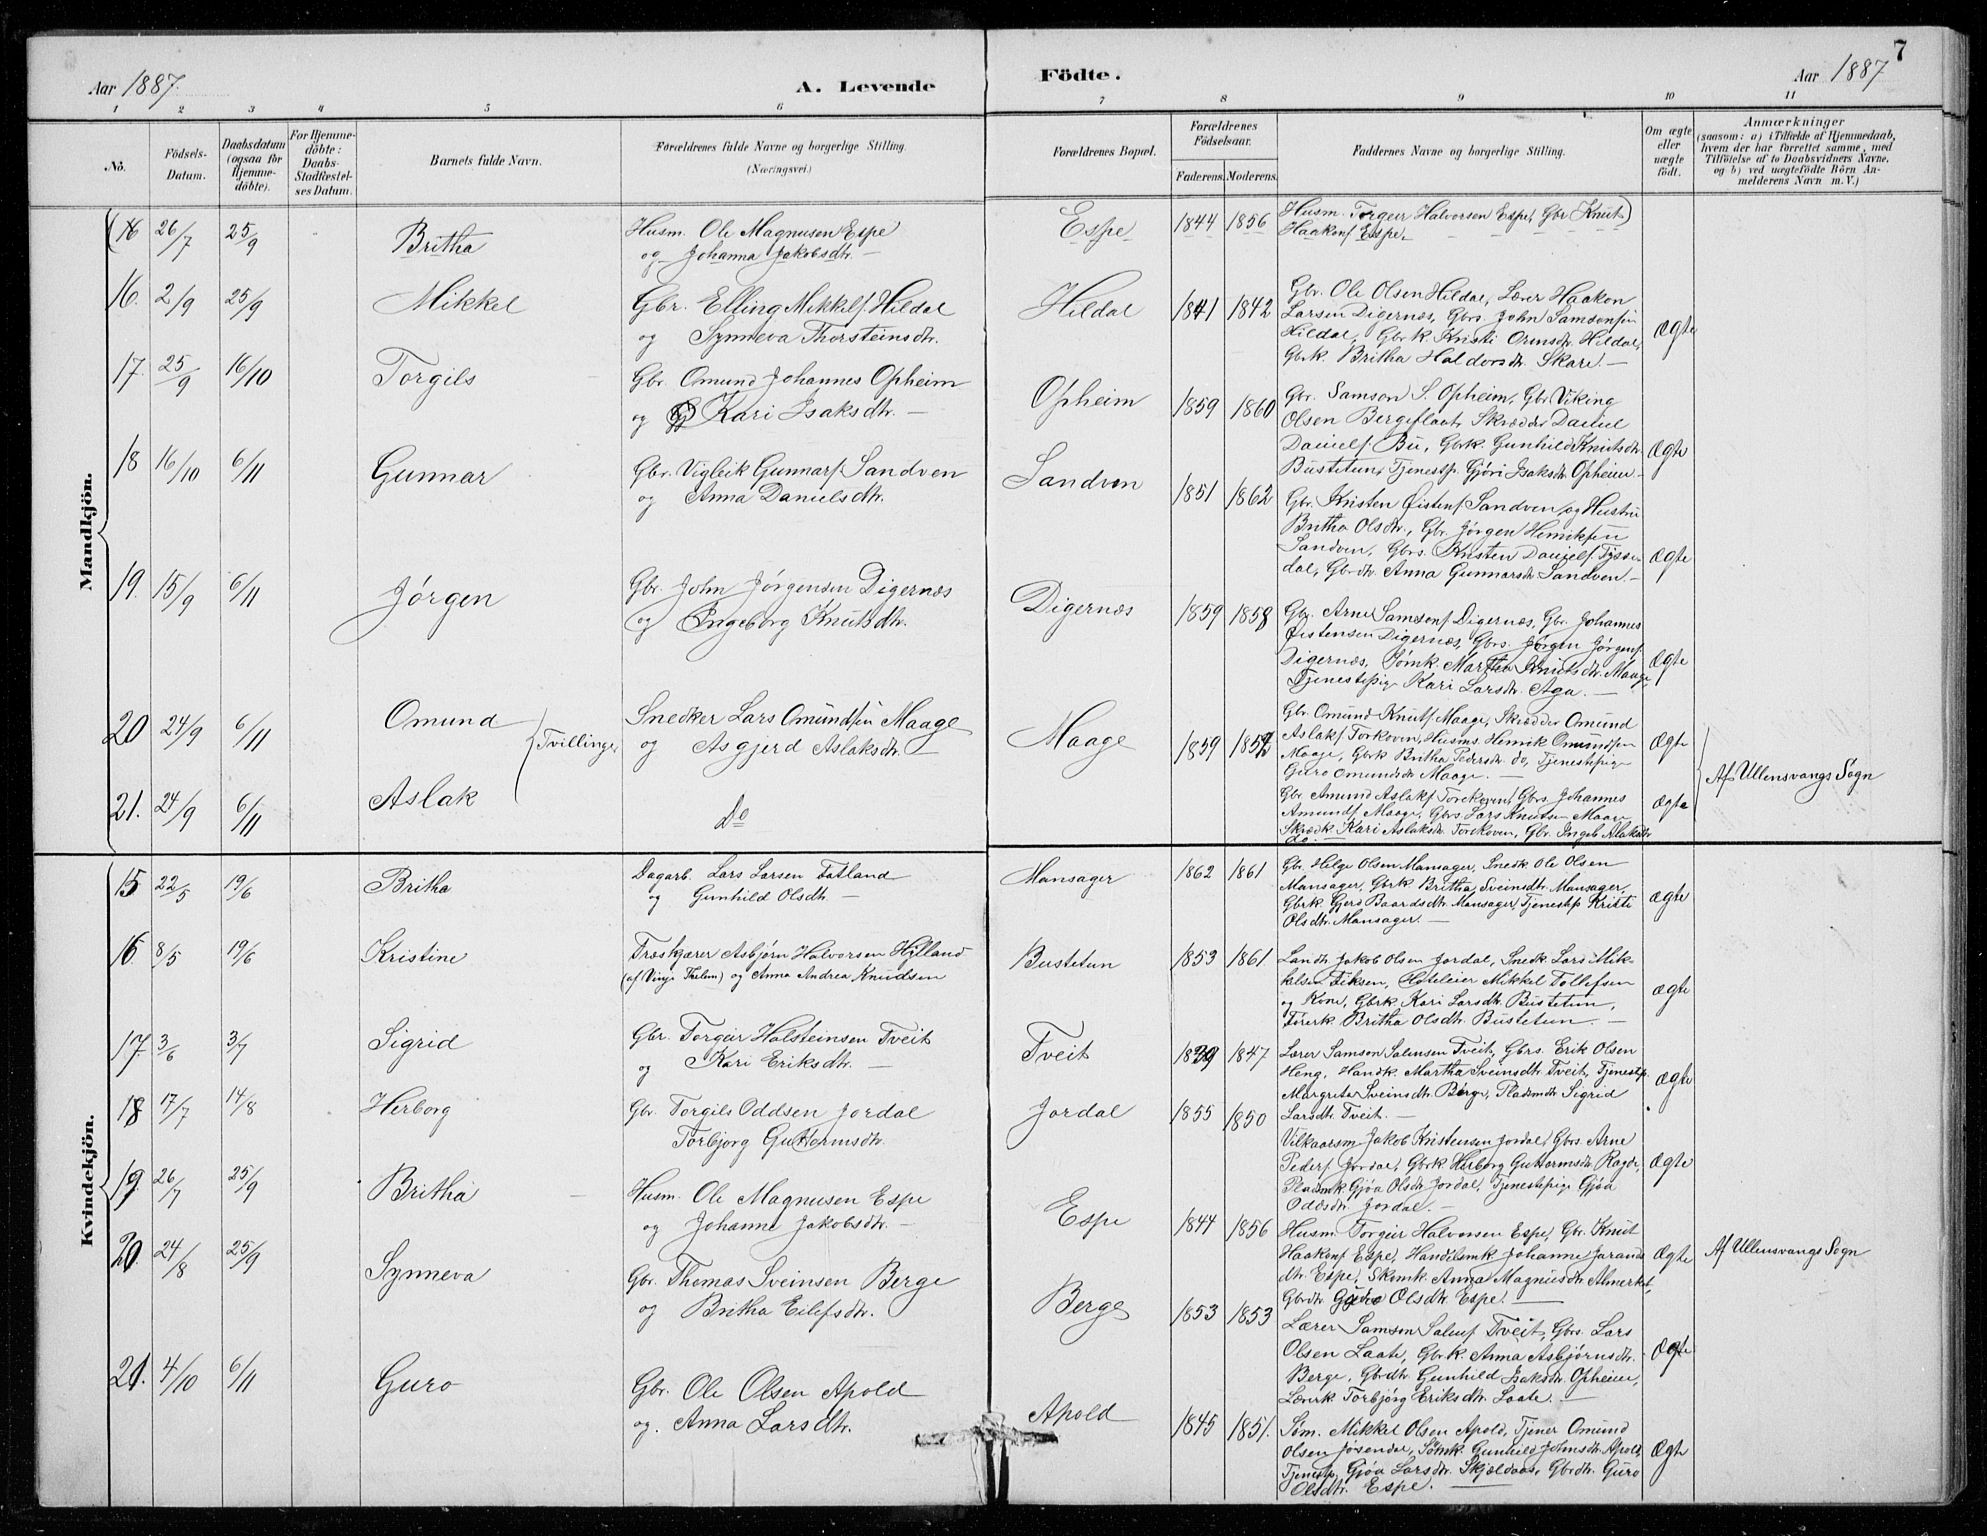 7
Aar 1887.
A. Levende
Födte.
Aar 1887
1 2 3 4 5 6 7 8 9 10 11
No.
Födsels-
Datum.
Daabsdatum
(ogsaa for
Hjemme-
döbte).
For Hjemme-
döbte:
Daabs-
Stadfæstel-
ses Datum.
Barnets fulde Navn.
Forældrenes fulde Navne og borgerlige Stilling.
(Næringsvei.)
Forældrenes Bopæl.
Forældrenes
Födselsaar.
Faderens. Moderens.
Faddernes Navne og borgerlige Stilling.
Om ægte
eller
uægte
födt.
Anmærkninger
(saasom: a) i Tilfælde af Hjemmedaab,
hvem der har forrettet samme, med
Tilföielse af to Daabsvidners Navne,
og b) ved uægtefödte Börn An-
melderens Navn m. V.)
Mandkjön.
(16 26/7 25/9 Britha
Husm. Ole Magnusen Espe
og Johanna Jakobsdtr. —
Espe 1844 1856
Husm. Torgeir Halvorsen Espe, Gbr Knut)
Haakons Espe.
16. 2/9 25/9 Mikkel
Gbr. Elling Mikkels. Hildal
og Synneva Thorsteinsdtr.
Hildal 1841 1842
Gbr. Ole Olsen Hildal, Lærer Haakon
Larsen Digernæs, Gbrs. John Samsonsen
Hildal, Gbrk. Kristi Ormsdtr. Hildal,
Gbrk. Britha Haldorsdtr Skare. —
Ægte
17. 25/9 16/10 Torgils
Gbr. Omund Johannes Opheim
og Kari Isaksdtr. —
Opheim 1859 1860
Gbr. Samson S. Opheim, Gbr. Viking
Olsen Bergeflaat, Skrædder Daniel
Daniels. Bu, Gbrk. Gunhild Knutsdtr.
Bustetun, Tjenestp. Gjöri Isaksdtr. Opheim. —
Ægte
18 16/10 6/11 Gunnar
Gbr. Vigleik Gunnars. Sandven
og Anna Danielsdtr.
Sandven 1851 1862
Gbr. Kristen Østens. Sandven og Hustru
Britha Olsdtr., Gbr. Jørgen Henriksen
Sandven, Gbrs. Kristen Daniels. Tysse-
dal, Gbrdtr. Anna Gunnarsdtr Sandven. —
Ægte
19. 15/9 6/11 Jørgen
Gbr. John Jørgensen Digernæs
og Ingeborg Knutsdtr.
Digernæs 1859 1858
Gbr. Arne Samsons. Digernæs, Gbr. Johannes
Østensen Digernæs, Gbrs. Jørgen Jørgens.
Digernæs, Tømk. Martha Knutsdtr. Maage,
Tjenestepige Kari Larsdtr. Aga. —
Ægte
20 24/9 6/11 Omund
Tvillinger
Snedker Lars Omundsen Maage
og Asgjerd Aslaksdtr. —
Maage 1859
Gbr. Omund Knuts. Maage, Skrædder Omund
Aslaks. Torkoven, Husms. Henrik Omundsen
Maage, Gbrk Britha Pedersdtr. do, Tjenestepige
Guro Omundsdtr Maage. —
Ægte
Af Ullensvangs Sogn
21. 24/9 6/11 Aslak
Do
Gbr. Amund Aslaks. Torekoven, Gbrs. Johannes
Amunds. Maage, Gbrs Lars Knutsen Maage
Skrædk. Kari Aslaksdtr. Torekoven, Gbr. Ingeb. Alaksdtr
do. —
Ægte
Kvindekjön.
15 22/5 19/6 Britha
Dagarb. Lars Larsen Fatland
og Gunhild Olsdtr. —
Mansager 1862 1861
Gbr. Helge Olsen Mansager, Snedk Ole Olsen
Mansager, Gbrk Britha Sveinsdtr. Mansager,
Gbrk Gjerd Baardsdtr. Mansager, Tjenestp Kristi
Olsdtr. Mansager. —
Ægte
16. 8/5 19/6 Kristine
Træskjærer Asbjørn Halvorsen Hylland
(af Vinje Thelem.) og Anna Andrea Knudsen
Bustetun 1853 1861
Landh. Jakob Olsen Jordal, Snedk. Lars Mik-
kelsen Eiksen, Hoteleier Mikkel Tollefsen
og Kone, Gbrk. Kari Larsdtr. Bustetun,
Førerk. Britha Olsdtr. Bustetun. —
Ægte
17. 3/6 3/7 Sigrid
Gbr. Torgeir Halsteinsen Tveit
og Kari Eriksdtr. —
Tveit 1839 1847
Lærer Samson Salensen Tveit, Gbrs. Erik Olsen
Heng, Handk. Martha Sveinsdtr. Tveit, Tjenestp.
Margreta Sveinsdtr. Berge, Pladsmdtr Sigrid
Larsdtr. Tveit. —
Ægte
18 17/7 14/8 Herborg
Gbr. Torgils Oddsen Jordal
Torbjorg Guttormsdtr.
Jordal 1855 1850
Vilkaarsm. Jakob Kristensen Jordal, Gbrs. Arne
Peders. Jordal, Gbrk Herborg Guttormsdtr. Ragde,
Pladsmk Gjøa Olsdtr. Jordal, Tjenestepige Gjøa
Oddsdtr. Jordal. —
Ægte
19. 26/7 25/9 Britha
Husm. Ole Magnusen Espe
og Johanne Jakobsdtr. —
Espe 1844 1856
Husm. Torgeir Halvorsen Espe, Gbr. Knut
Haakons. Espe, Handelsmk. Johanne Jarands
dtr. Espe, Skomk. Anna Magnusdtr. Almerket,
Gbrdtr. Olsdtr. Espe. —
Ægte
Af Ullensvangs Sogn
20. 24/8 25/9 Synneva
Gbr. Thomas Sveinsen Berge
og Britha Eilefsdtr.
Berge 1853 1853
Lærer Samson Salens. Tveit, Gbrs. Lars
Olsen Laate, Gbrk. Anna Asbjørnsdtr.
Berge, Gbrdtr. Gunhild Isaksdtr. Opheim,
Lærerk Torbjørg Eriksdtr. Laate. —
Ægte
21. 4/10 6/11 Guro
Gbr. Ole Olsen Apold
og. Anna Larsdtr.
Apold 1845 1851.
Søm. Mikkel Olsen Apold, Tjener Omund
Olsen Jøsendal, Sømk. Gunhild Johnsdtr. Apold,
Tjenestp. Gjøa Larsdtr. Skjældaas, Gbrdtr. Guro
Olsdtr. Espe. —
Ægte